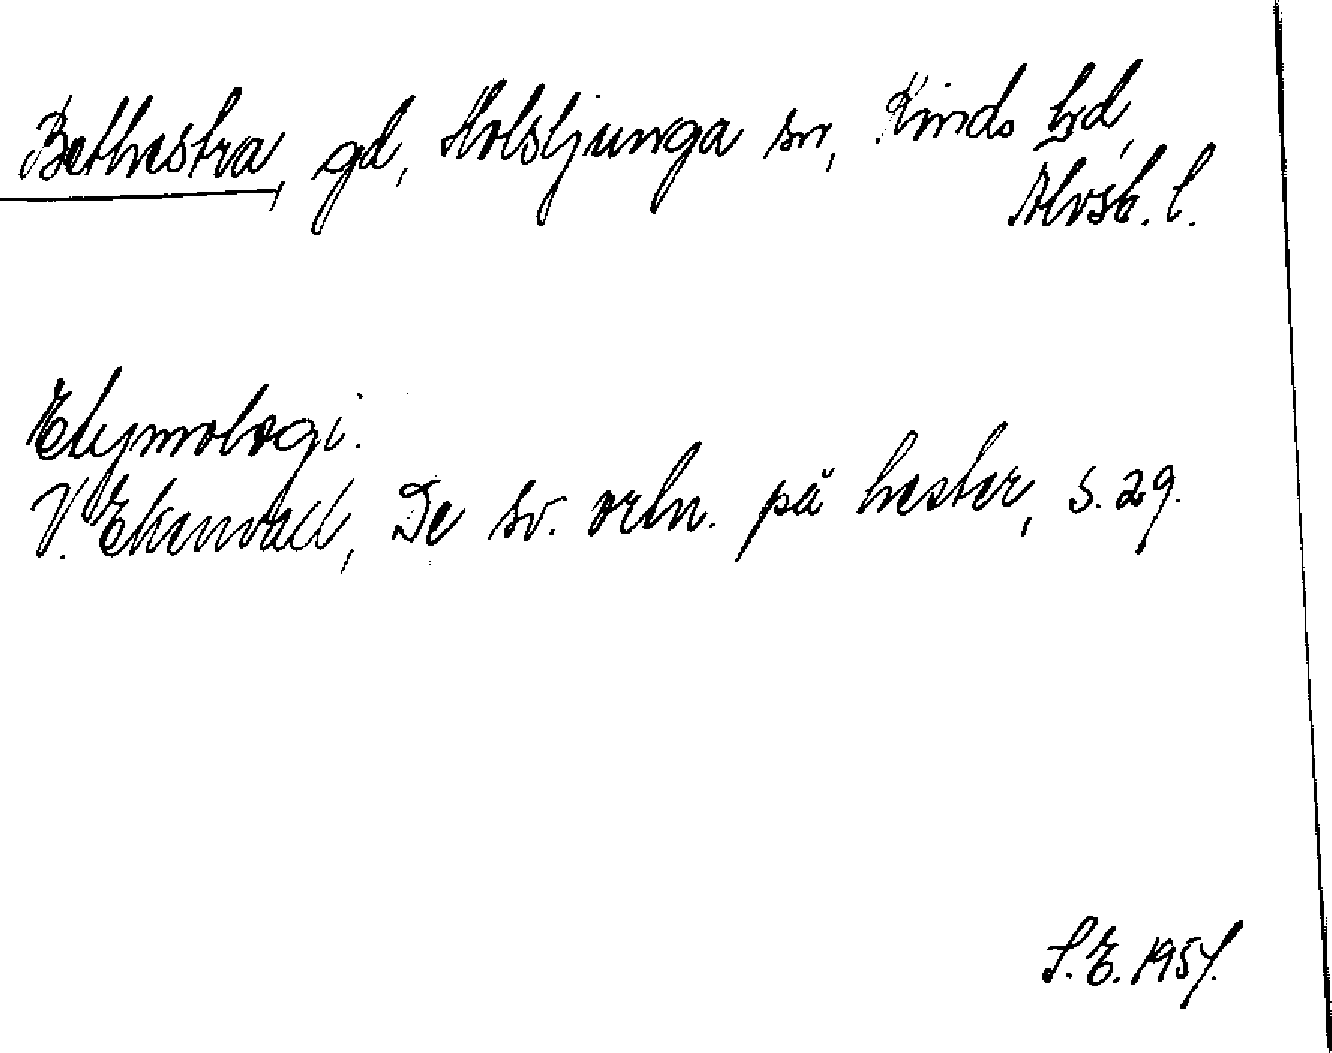 Bethestra, gd, Holsljunga sn, Kinds hd,
Älvsb. l.
Etymologi.
V. Ekenvall, De sv. ortn. på hester, s. 29.
S. E. 1954.